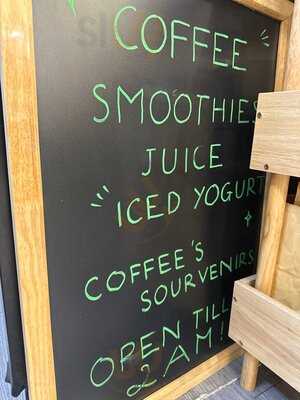 COFFEE
SMOOTHIES
JUICE
ICED YOGURT
COFFEE'S
SOURVENIRS
OPEN TILL
2 AM!